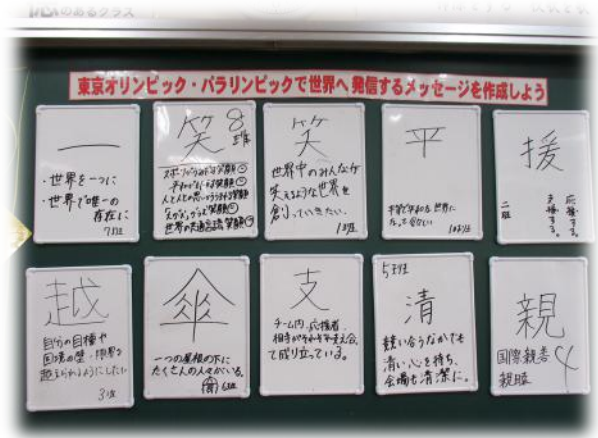 のあるクラス
東京オリンピック・パラリンピックで世界へ発信するメッセージを作成しよう
一
・世界を一つに
・世界で唯一の
存在に
7班
笑 8班
笑
世界中のみんなが
笑えるような世界を
創っていきたい。
1班
平
平等で平和な世界に
なって欲しい
10班
援
応援する。
支援する。
二班
越
自分の目標や
国境の壁・限界を
越えられるようにしたい
3班
傘
一つの屋根の下に
たくさんの人々がいる。
6班
支
チーム内、応援者、
相手がそれぞれ支え合っ
て成り立っている。
5班
清
競い合うなかでも
清い心を持ち、
会場も清潔に。
親
国際親善
親睦
4